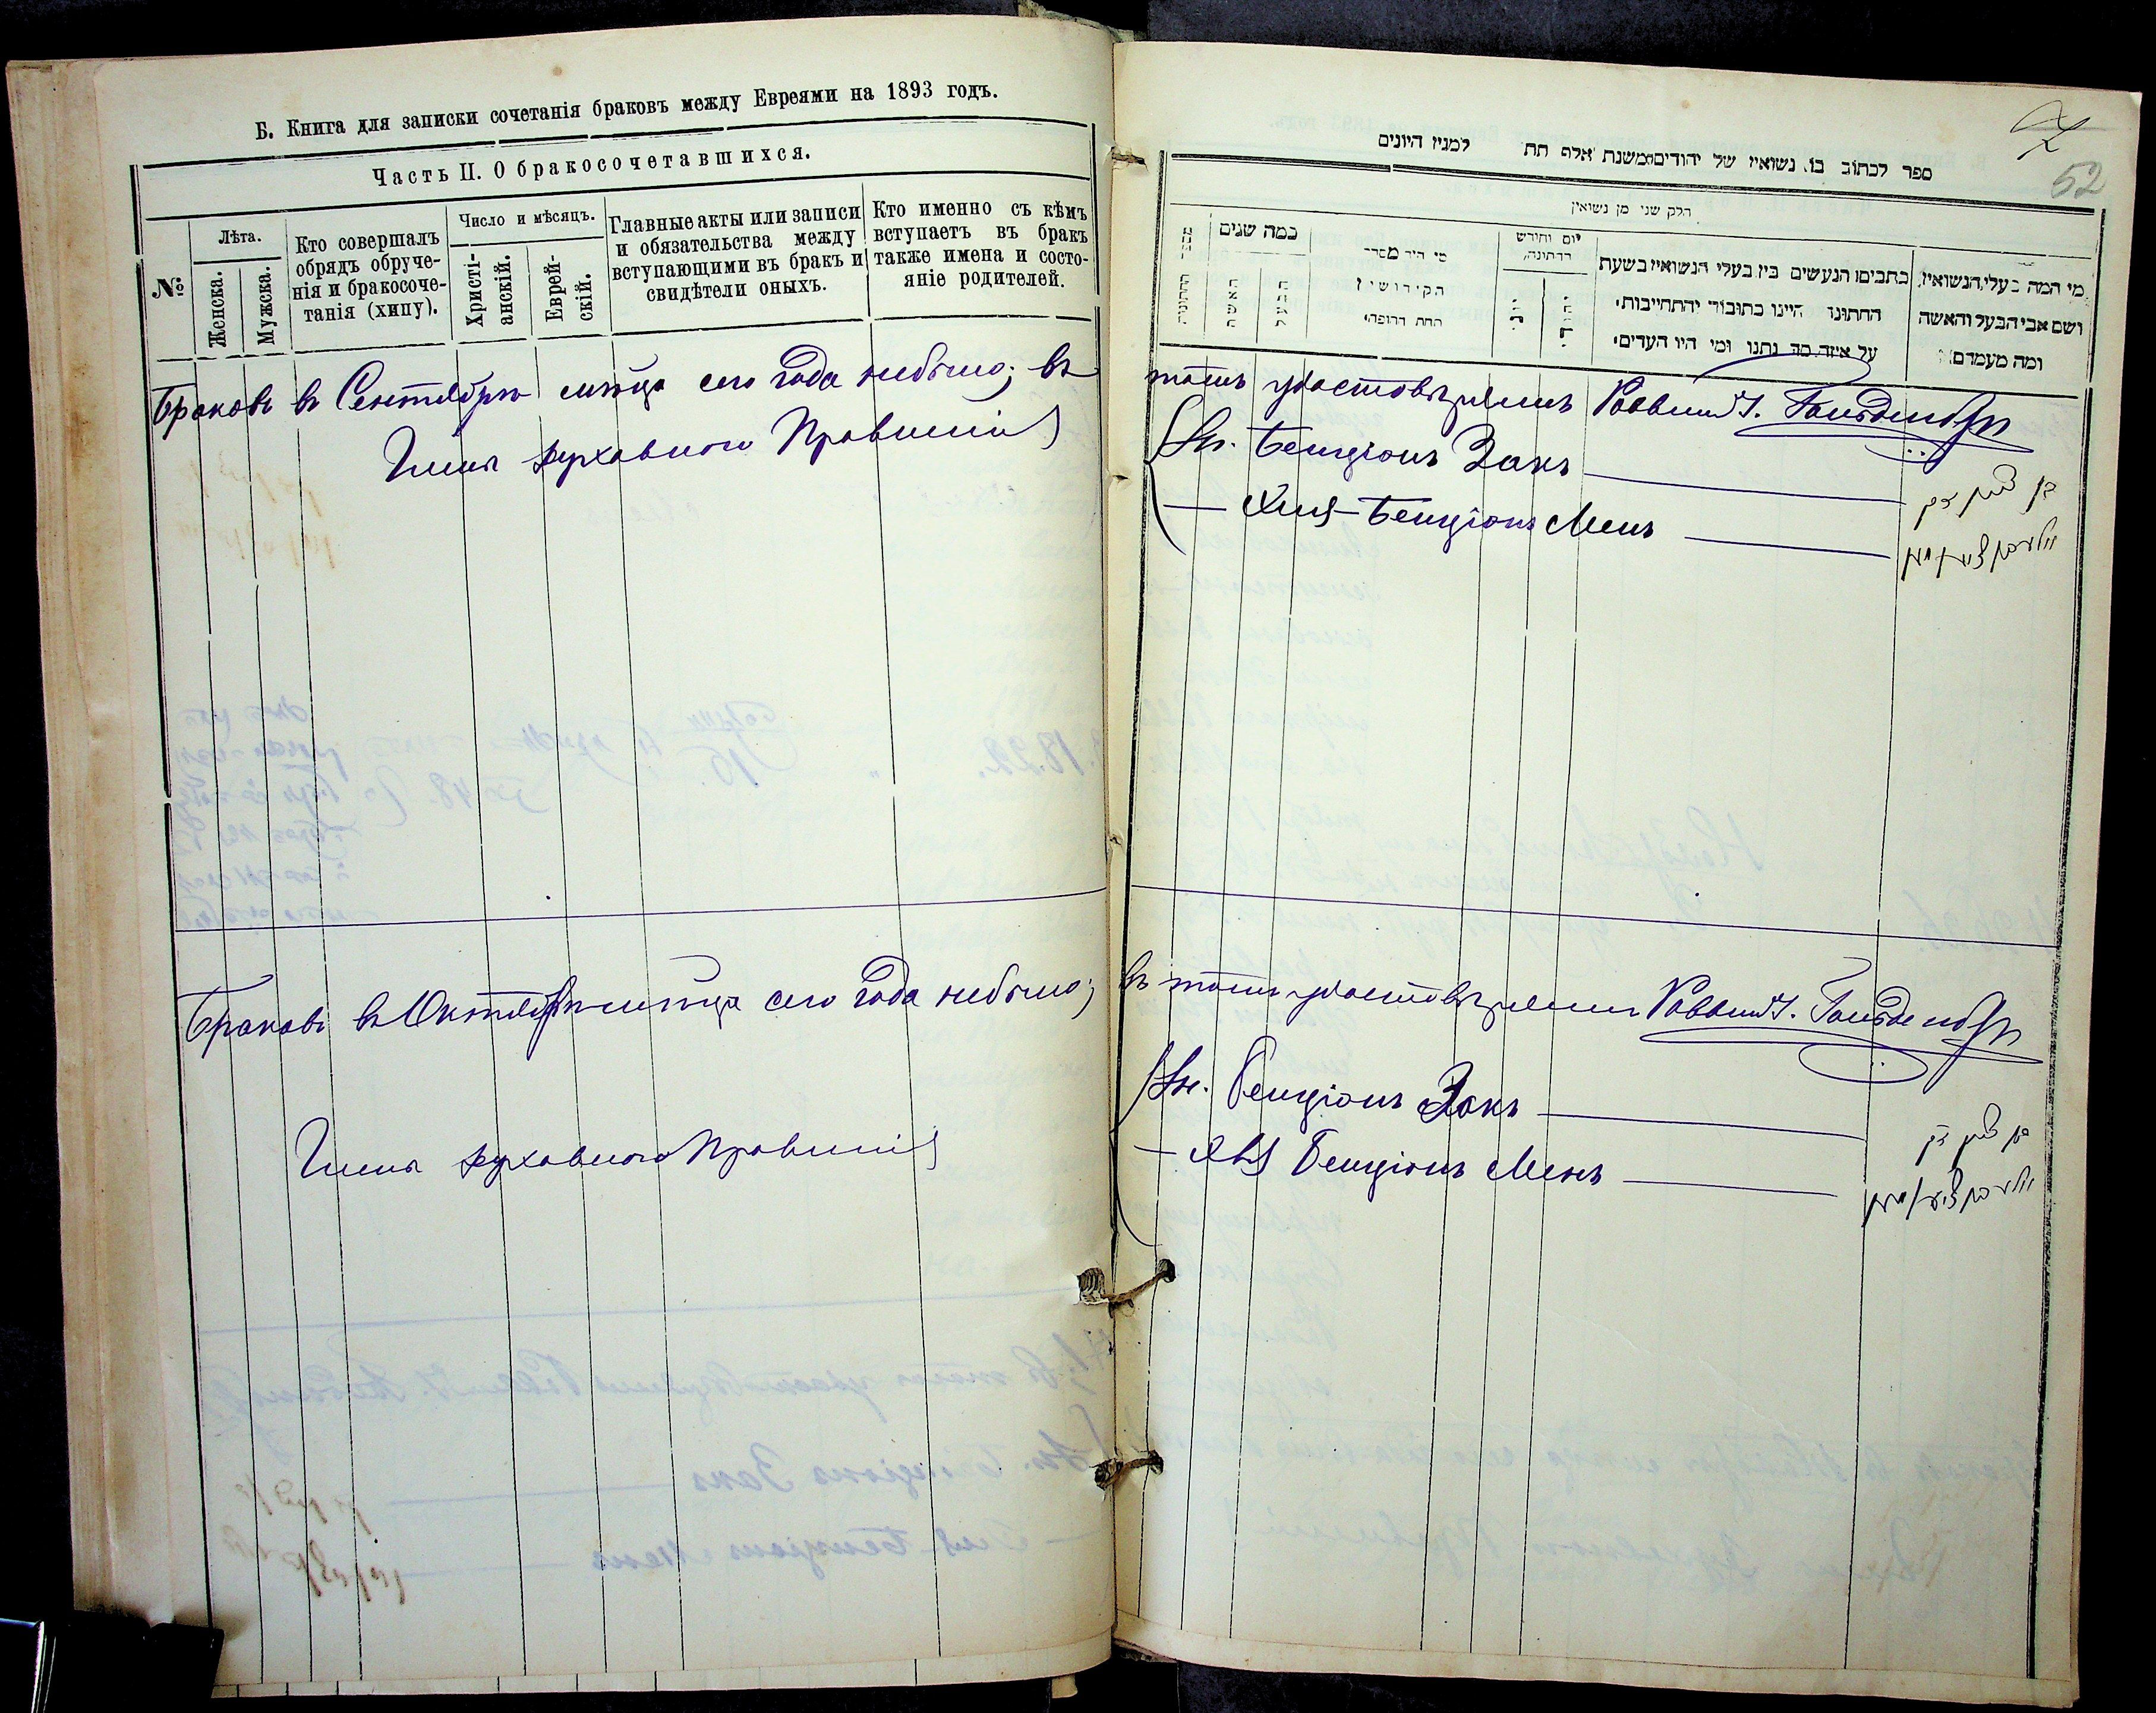 Б. Книга для записки сочетанія браковъ между Евреями на 1893 годъ.
Часть II. О бракосочетавшихся.
№
Лѣта.
Женска.
Мужска.
Кто совершалъ
обрядъ обруче-
нія и бракосоче-
танія (хипу).
Число и мѣсяцъ.
Христі-
анскій.
Еврей-
скій.
Главные акты или записи
и обязательства между
вступающими въ бракъ и
свидѣтели оныхъ.
Кто именно съ кѣмъ
вступаетъ въ бракъ
также имена и состо-
яніе родителей.
Браковъ въ Сентябрѣ мѣсяца сего года небыло; въ
Члены духовнаго Правленія
Браковъ въ Октябрѣ мѣсяца сего года небыло;
Члены духовнаго Правленія
52
ספר לכתוב בו נשואין של יהודים משנת אלף תת למנין היונים
חלק שני מן נשואין
מספר החתונה
כמה שנים
האשה
הבעל
מי היה מסדר
הקידושין
תחת החופה
יום וחודש
החתונה
יוני
יהודי
כתבים הנעשים בין בעלי הנשואין בשעת
החתונה היינו כתובה והתחייבות
על איזה סך נתנו ומי היו העדים
מי המה בעלי הנשואין
ושם אבי הבעל והאשה
ומה מעמדם
томъ удостовѣряемъ Раввинъ
Бенціонъ Закъ
Бенціонъ Менъ
בן ציון זק
въ томъ удостовѣряемъ Раввинъ
Бенціонъ Закъ
Бенціонъ Менъ
בן ציון זק